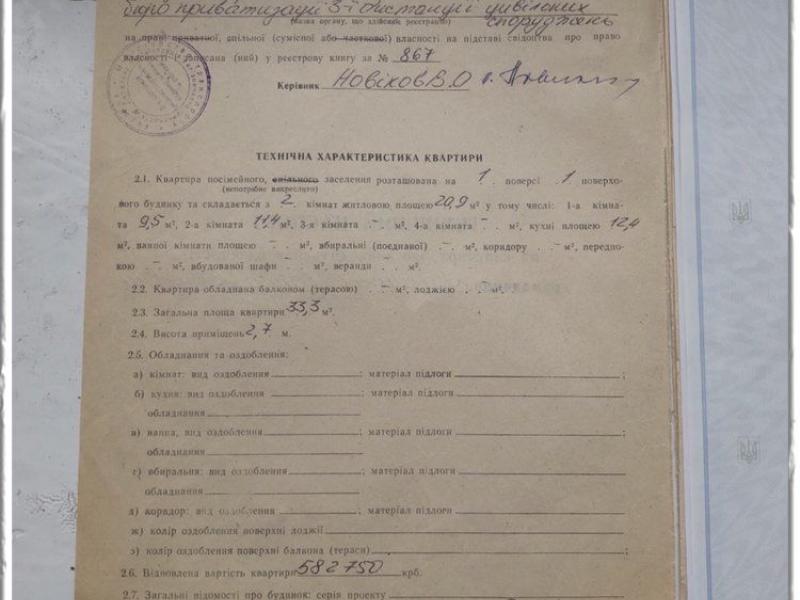 бюро приватизації 3-ї дистанції цивільних
споруджень
(назва органу, що здійснює реєстрацію)
на праві приватної, спільної (сумісної або часткової) власності на підставі свідоцтва про право
власності і записана (ний) у реєстрову книгу за № 867
Керівник Новіков В.О
ТЕХНІЧНА ХАРАКТЕРИСТИКА КВАРТИРИ
2.1. Квартира посімейного, спільного заселення розташована на 1 . поверсі .1 . поверхо-
(непотрібне викреслити)
вого будинку та складається з 2. кімнат житловою площею 20,9 м² у тому числі: 1-а кімна-
та 9,5 м², 2-а кімната 11,4 м², 3-я кімната . – м², 4-а кімната – . . м², кухні площею 12,4
м², ванної кімнати площею – . м², вбиральні (поєднаної) . –. м², коридору . . – м², передпо-
кою . –. м², вбудованої шафи . . м², веранди . . м².
2.2. Квартира обладнана балконом (терасою) . – м², лоджією . –. м².
2.3. Загальна площа квартири 33,3 м².
2.4. Висота приміщень 2,7 м.
2.5. Обладнання та оздоблення:
а) кімнат: вид оздоблення ; матеріал підлоги ;
б) кухня: вид оздоблення ; матеріал підлоги
обладнання
в) ванна, вид оздоблення ; матеріал підлоги ;
обладнання
г) вбиральня: вид оздоблення ; матеріал підлоги ;
обладнання
д) коридор: вид оздоблення ; матеріал підлоги
ж) колір оздоблення поверхні лоджії
з) колір оздоблення поверхні балкона (тераси)
2.6. Відновлена вартість квартири 582750 крб.
2.7. Загальні відомості про будинок: серія проекту